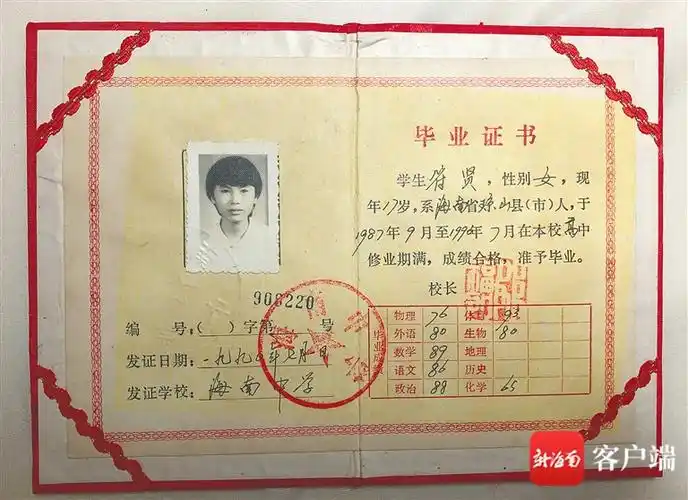 毕业证书
学生符贤,性别女,现
年17岁,系海南省琼山县(市)人,于
1987年9月至1990年7月在本校高中
修业期满,成绩合格,准予毕业。
校长
908220
编 号:( )字第 号
发证日期:一九九〇年七月 日
发证学校:海南中学
毕业成绩
物理 76 体育 93
外语 80 生物 80
数学 89 地理
语文 86 历史
政治 88 化学 65
新海南 客户端